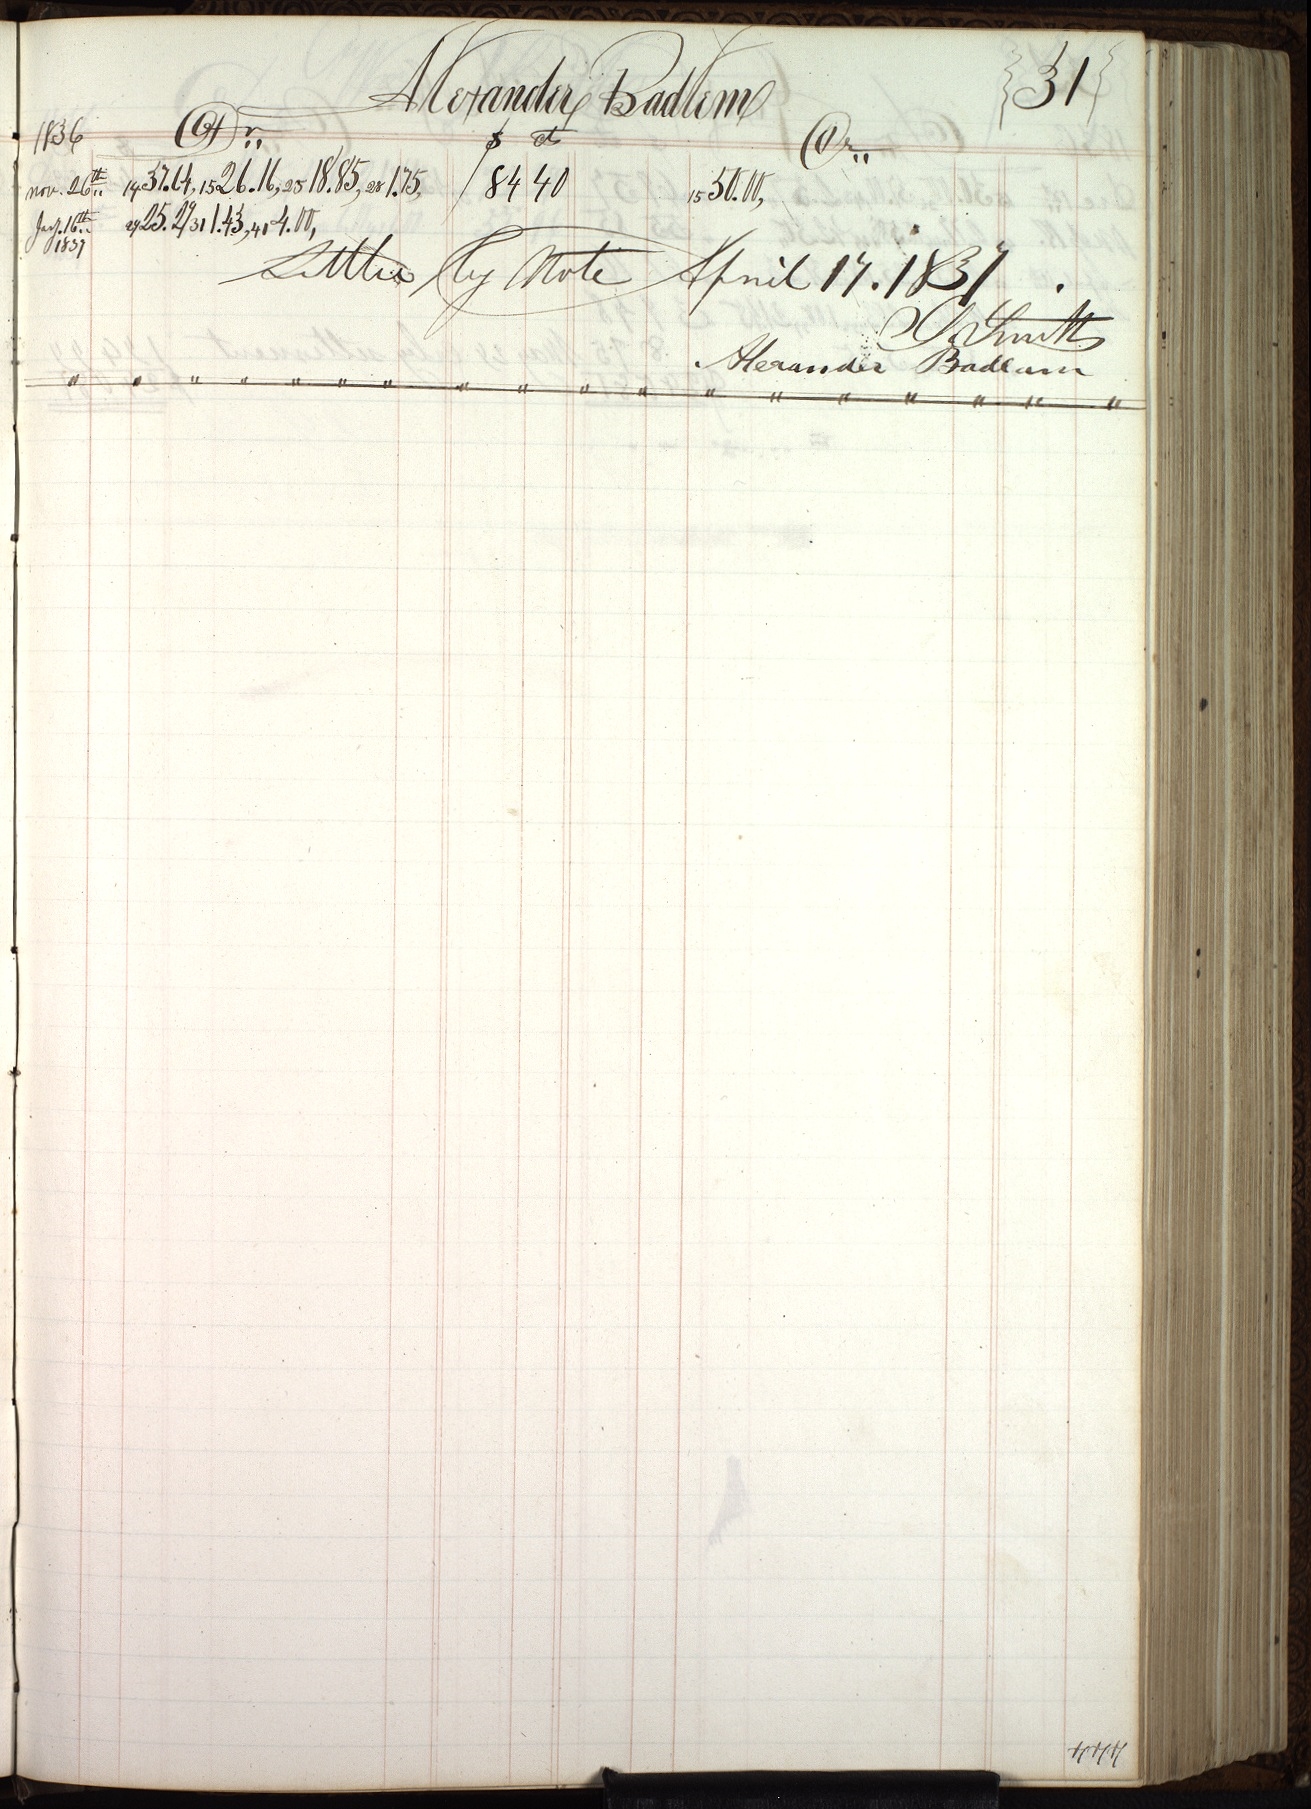 Alexander Badlem {31}
1836 Dr,, $ ct Cr,,
nov. 26th,, 14 37.64, 15 26.16, 25 18.85, 28 1.75, 84 40 15 50.00,
Jay. 16th,, 29 25.29 31 1.43, 41 4.00,
1837
Settled by Note April 17. 1837.
J. Smith
Alexander Badlam